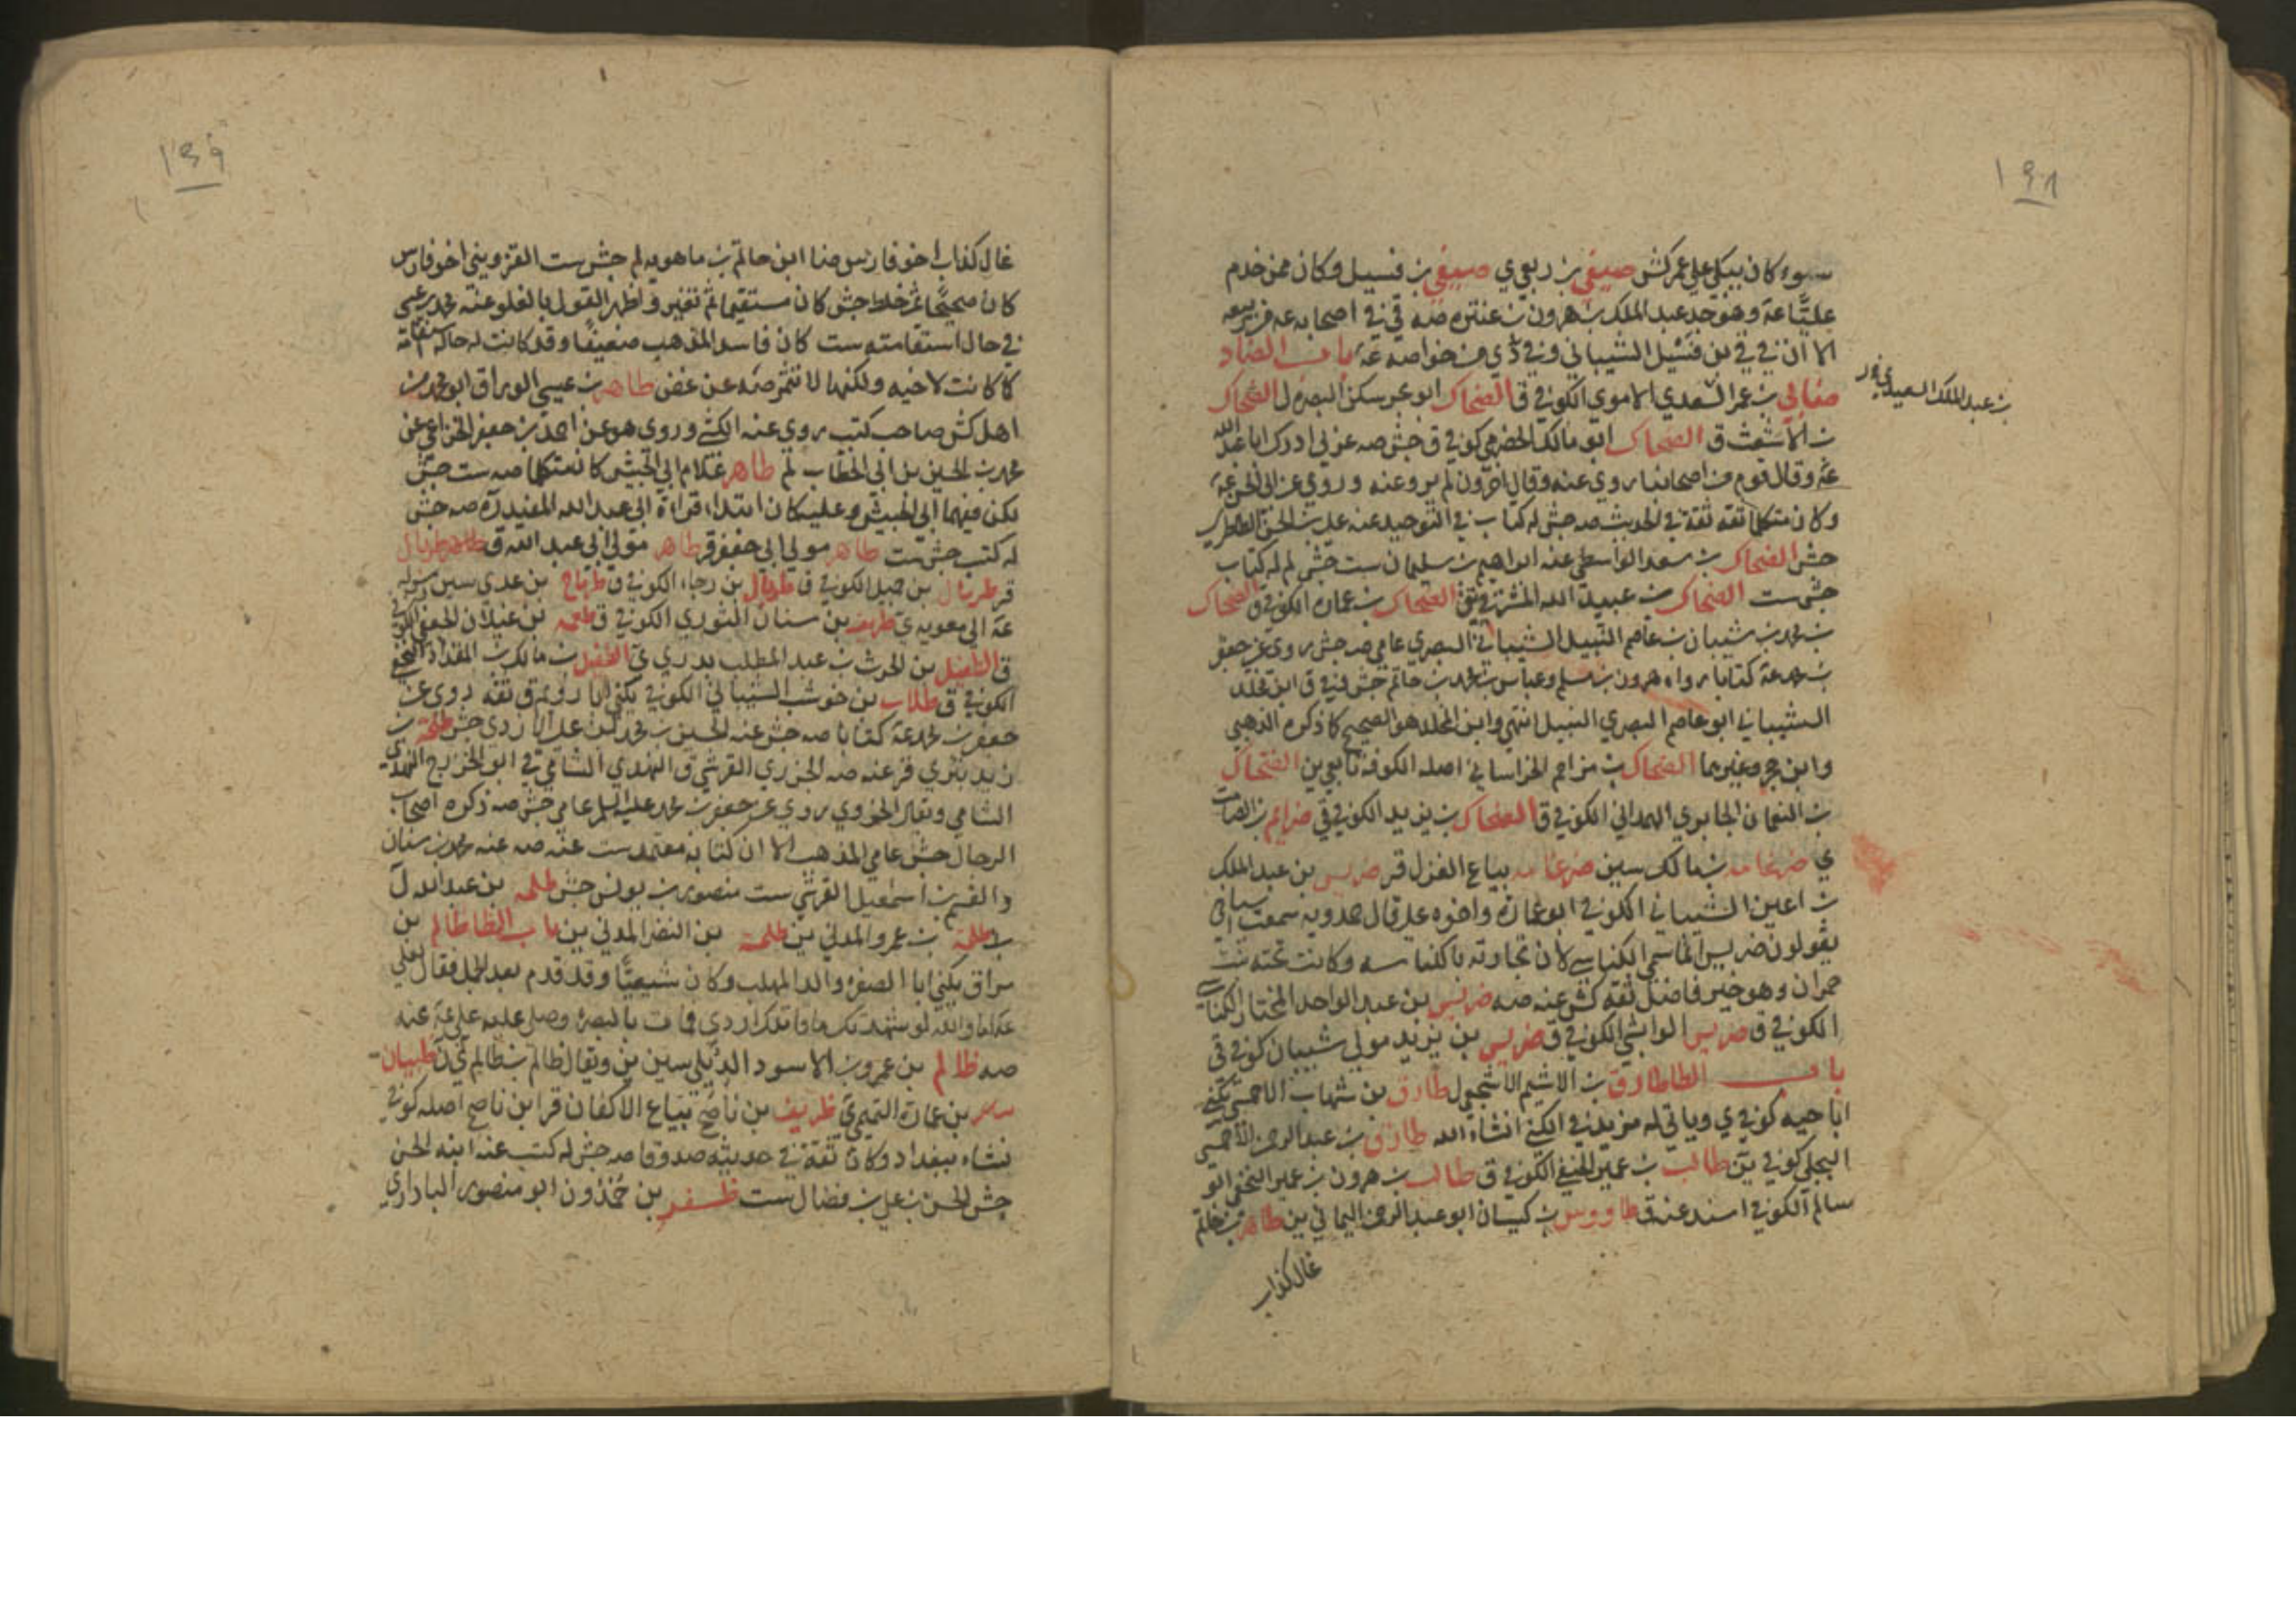 ١٩٨
سوء كان يبكي على عمر كش صيفي بن ربعي ي صيفي بن فسيل وكان ممن خدم
عليا عه وهو جد عبد الملك بن هرون بن عنتره صه في في اصحابه عه
الا ان في بن فشيل الشيباني وفي ي من خواصه عه باب الضاد
ضابي بن عمر السعدي الاموي الكوفي ق الضحاك ابو بحر سكن البصره ل الضحاك
بن عبد الملك السعيدي
بن الاشعث ق الضحاك ابو مالك الحضرمي كوفي ق جش صه عربي ادرك ابا عبد الله
عه وقال قوم من اصحابنا روى عنه وقال اخرون لم يرو عنه وروى عن ابي الحسن عه
وكان متكلما ثقة ثقة في الحديث صه جش له كتاب في التوحيد عنه علي بن الحسن الطاطري
جش الضحاك بن سعد الواسطي عنه ابراهيم بن سليمان ست جش لم له كتاب
جش ست الضحاك بن عبيد الله المشرقي الضحاك بن عمارة الكوفي ق الضحاك
بن محمد بن شيبان بن عاصم النبيل الشيباني البصري عامي صه جش روى عن جعفر
بن محمد عه كتابا رواه هرون بن مسلم وعباس بن محمد بن حاتم جش في ق ابن مخلد
الشيباني ابو عاصم البصري النبيل انتهى وابن المخلد هو الصحيح كما ذكره الذهبي
وابن حجر وغيرهما الضحاك بن مزاحم الخراساني اصله الكوفة تابعي ين الضحاك
بن النعمان الجابري الهمداني الكوفي ق الضحاك بن يزيد الكوفي ق ضرام بن
ي ضرغامه بن مالك سين ضرغامه بياع الغزل قر ضريس بن عبد الملك
بن اعين الشيباني الكوفي ابو عمارة واخوه علي قال حمدويه سمعت اشياخي
يقولون ضريس انما سمي الكناسي لان تجارته بالكناسه وكانت تحته بنت
حمران وهو خير فاضل ثقة كش عنه صه ضريس بن عبد الواحد المختار الكناسي
الكوفي ق ضريس الوابشي الكوفي ق ضريس بن يزيد مولى شيبان كوفي ق
باب الطا طارق بن الاشيم الاشجعي ل طارق بن شهاب الاحمسي يكنى
ابا حيه كوفي ي وياتي له مزيد في الكنى انشاء الله طارق بن عبد الرحمن الاحمسي
البجلي كوفي ين طالب بن عمير الحنفي الكوفي ق طالب بن هرون بن عمير النخعي ابو
سالم الكوفي اسند عنه ق طاووس بن كيسان ابو عبد الرحمن اليماني ين طاهر بن حاتم
غال كذاب
١٩٩
غال كذاب اخو فارس ضا ابن حاتم بن ماهويه لم جش ست القزويني اخو فارس
كان صحيحا ثم خلط جش كان مستقيما ثم تغير واظهر القول بالغلو عنه محمد بن عيسى
في حال استقامته ست كان فاسد المذهب ضعيفا وقد كانت له حال استقامة
كما كانت لاخيه ولكنها لا تثمر صه عن غض طاهر بن عيسى الوراق ابو محمد من
اهل كش صاحب كتب روى عنه الكشي وروى هو عن احمد بن جعفر الخزاعي عن
محمد بن الحسين بن ابي الخطاب لم طاهر غلام ابي الجيش كان متكلما صه ست جش
لكن فيهما ابي الجيش وعليه كان ابتداء قراءة ابي عبد الله المفيد ره صه جش
له كتب جش ست طاهر مولى ابي جعفر قر طاهر مولى ابي عبد الله ق طربال
قر طربال بن جميل الكوفي ق طربال بن رجاء الكوفي ق طرماح بن عدي سين رسوله
عه الى معويه ي طريف بن سنان الثوري الكوفي ق طعمه بن غيلان الجعفي الكوفي
ق الطفيل بن الحرث بن عبد المطلب بدري ي الطفيل بن مالك بن المقداد النخعي
الكوفي ق طلاب بن حوشب الشيباني الكوفي يكنى ابا رويم ق ثقة روى عن
جعفر بن محمد عه كتابا صه جش عنه الحسين بن محمد بن علي الازدي جش طلحة بن
زيد بتري قر عنه صه الجزري القرشي ق النهدي الشامي في ابو الخزرج النهدي
الشامي ويقال الخزري روى عن جعفر بن محمد عليه السلم عامي جش صه ذكره اصحاب
الرجال جش عامي المذهب الا ان كتابه معتمد ست عنه صه عنه محمد بن سنان
والقسم بن اسمعيل القرشي ست منصور بن يونس جش طلحه بن عبد الله ل
طلحة بن عمرو المدني ين طلحة بن النضر المدني ين باب الظا ظالم بن
سراق يكنى ابا الصفره والد المهلب وكان شيعيا وقد قدم بعد الجمل فقال لعلي
عه اما والله لو شهدتك ما قاتلك ازدي فمات بالبصرة وصلى عليه علي عه عنه
صه ظالم بن عمرو بن الاسود الدئلي سين ين ويقال ظالم بن ظالم ي ن ظبيان
بن عمارة التميمي ي ظريف بن ناصح بياع الاكفان قر ابن ناصح اصله كوفي
نشاء ببغداد وكان ثقة في حديثه صدوقا صه جش له كتب عنه ابنه الحسن
جش الحسن بن علي بن فضال ست ظفر بن حمدون ابو منصور البادرايي